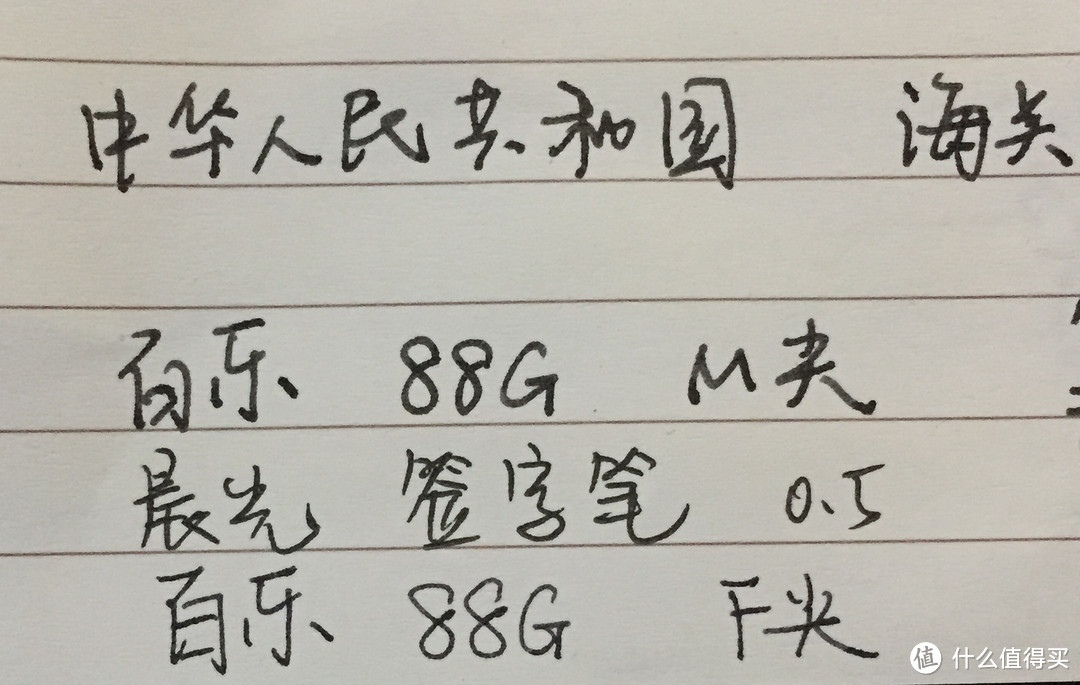 中华人民共和国 海关
百乐 88G M尖
晨光 签字笔 0.5
百乐 88G F尖
值 什么值得买